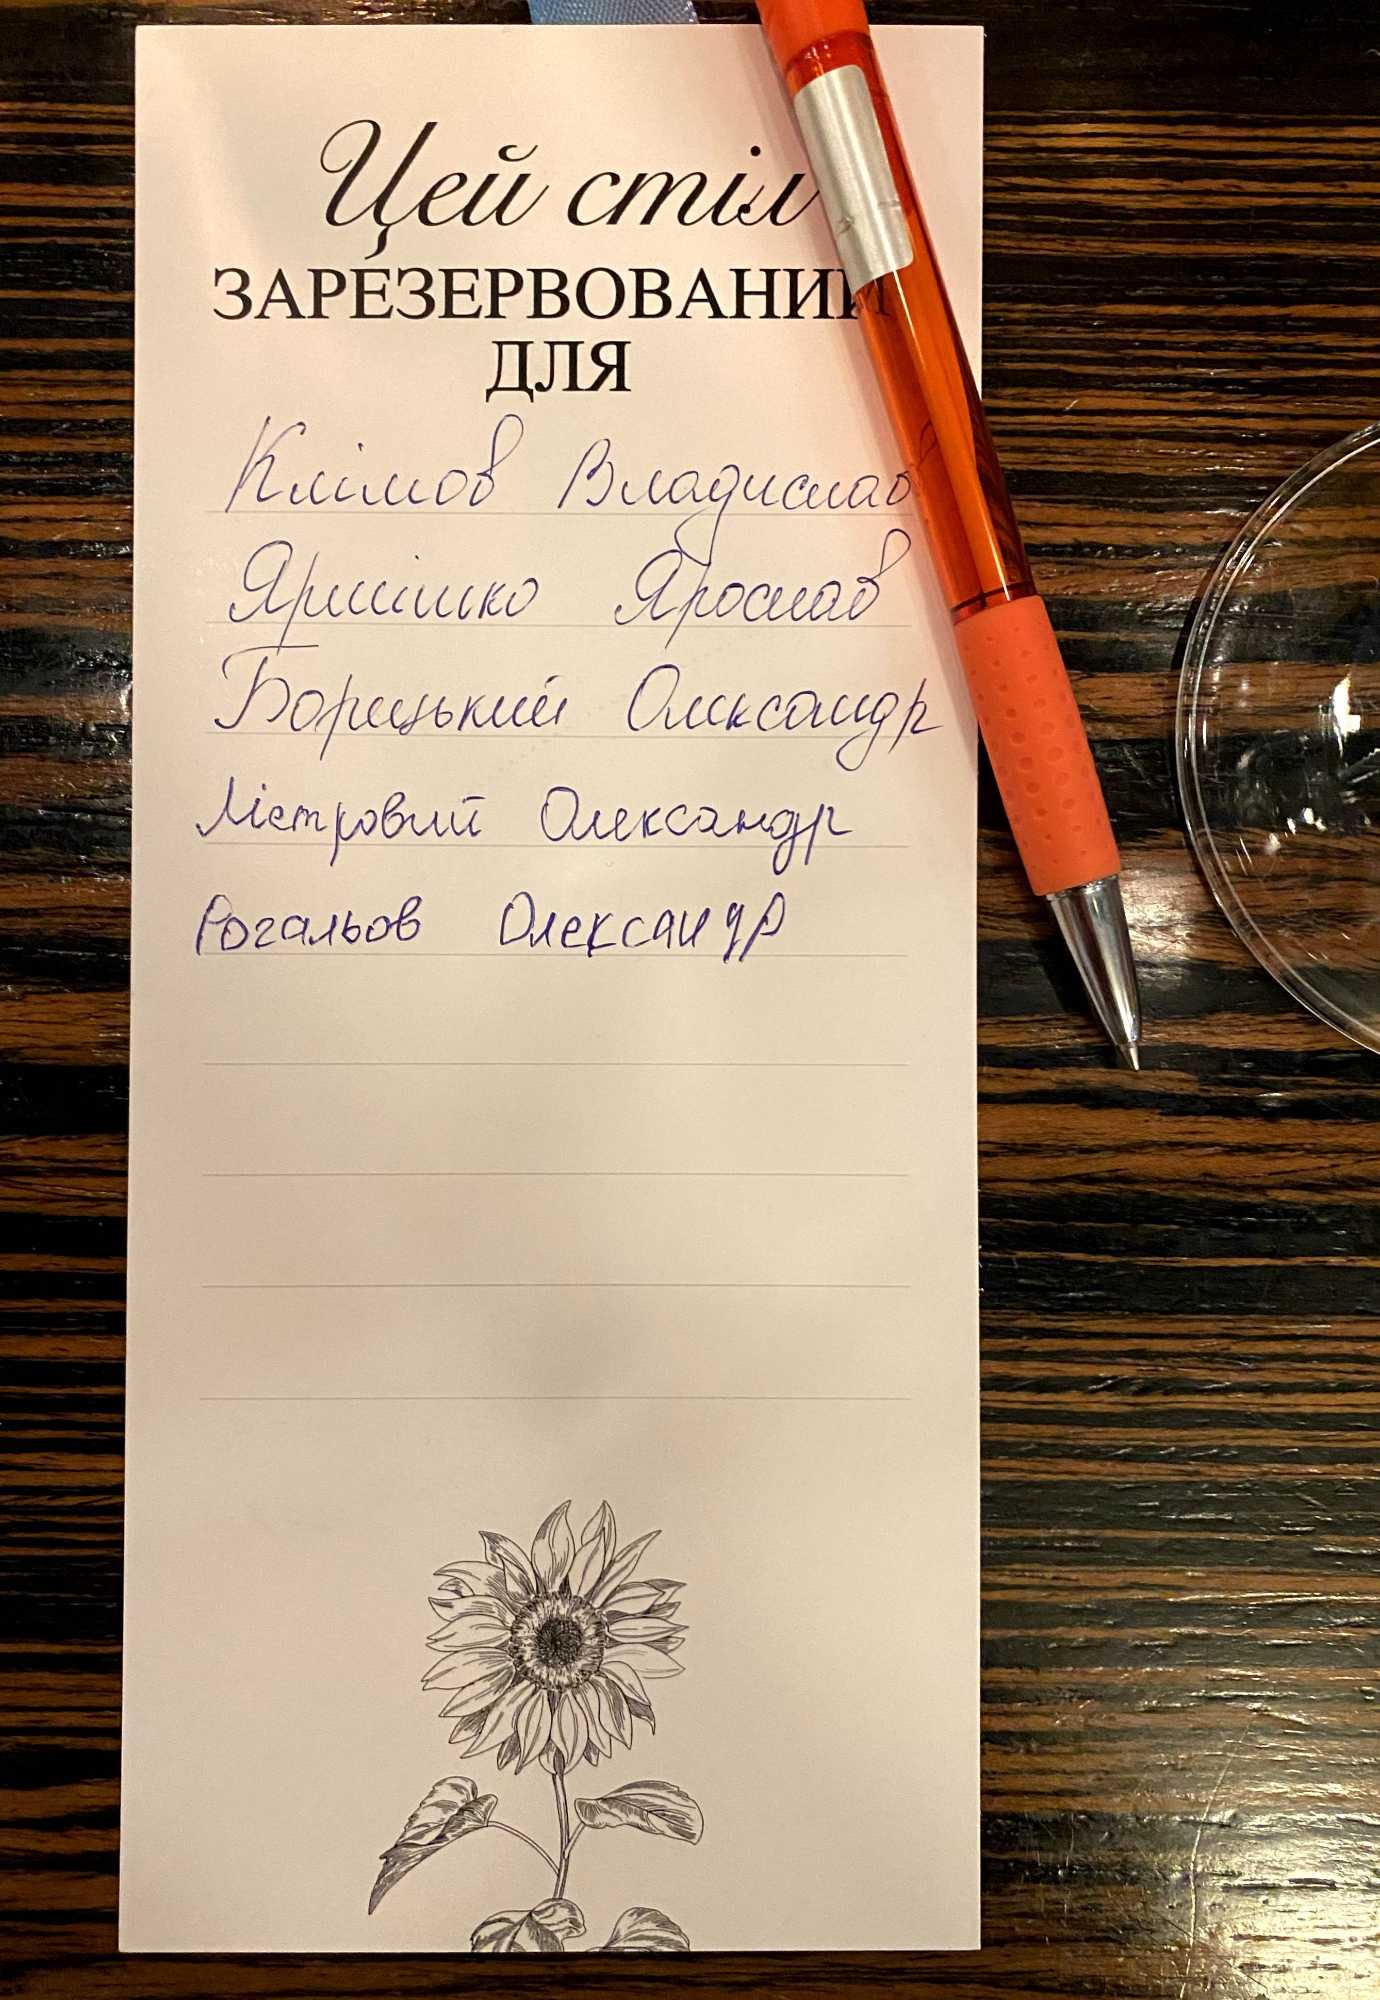 Цей стіл
ЗАРЕЗЕРВОВАНИЙ
ДЛЯ
Клімов Владислав
Ярмішко Ярослав
Борицький Олександр
Лістровий Олександр
Рогальов Олександр